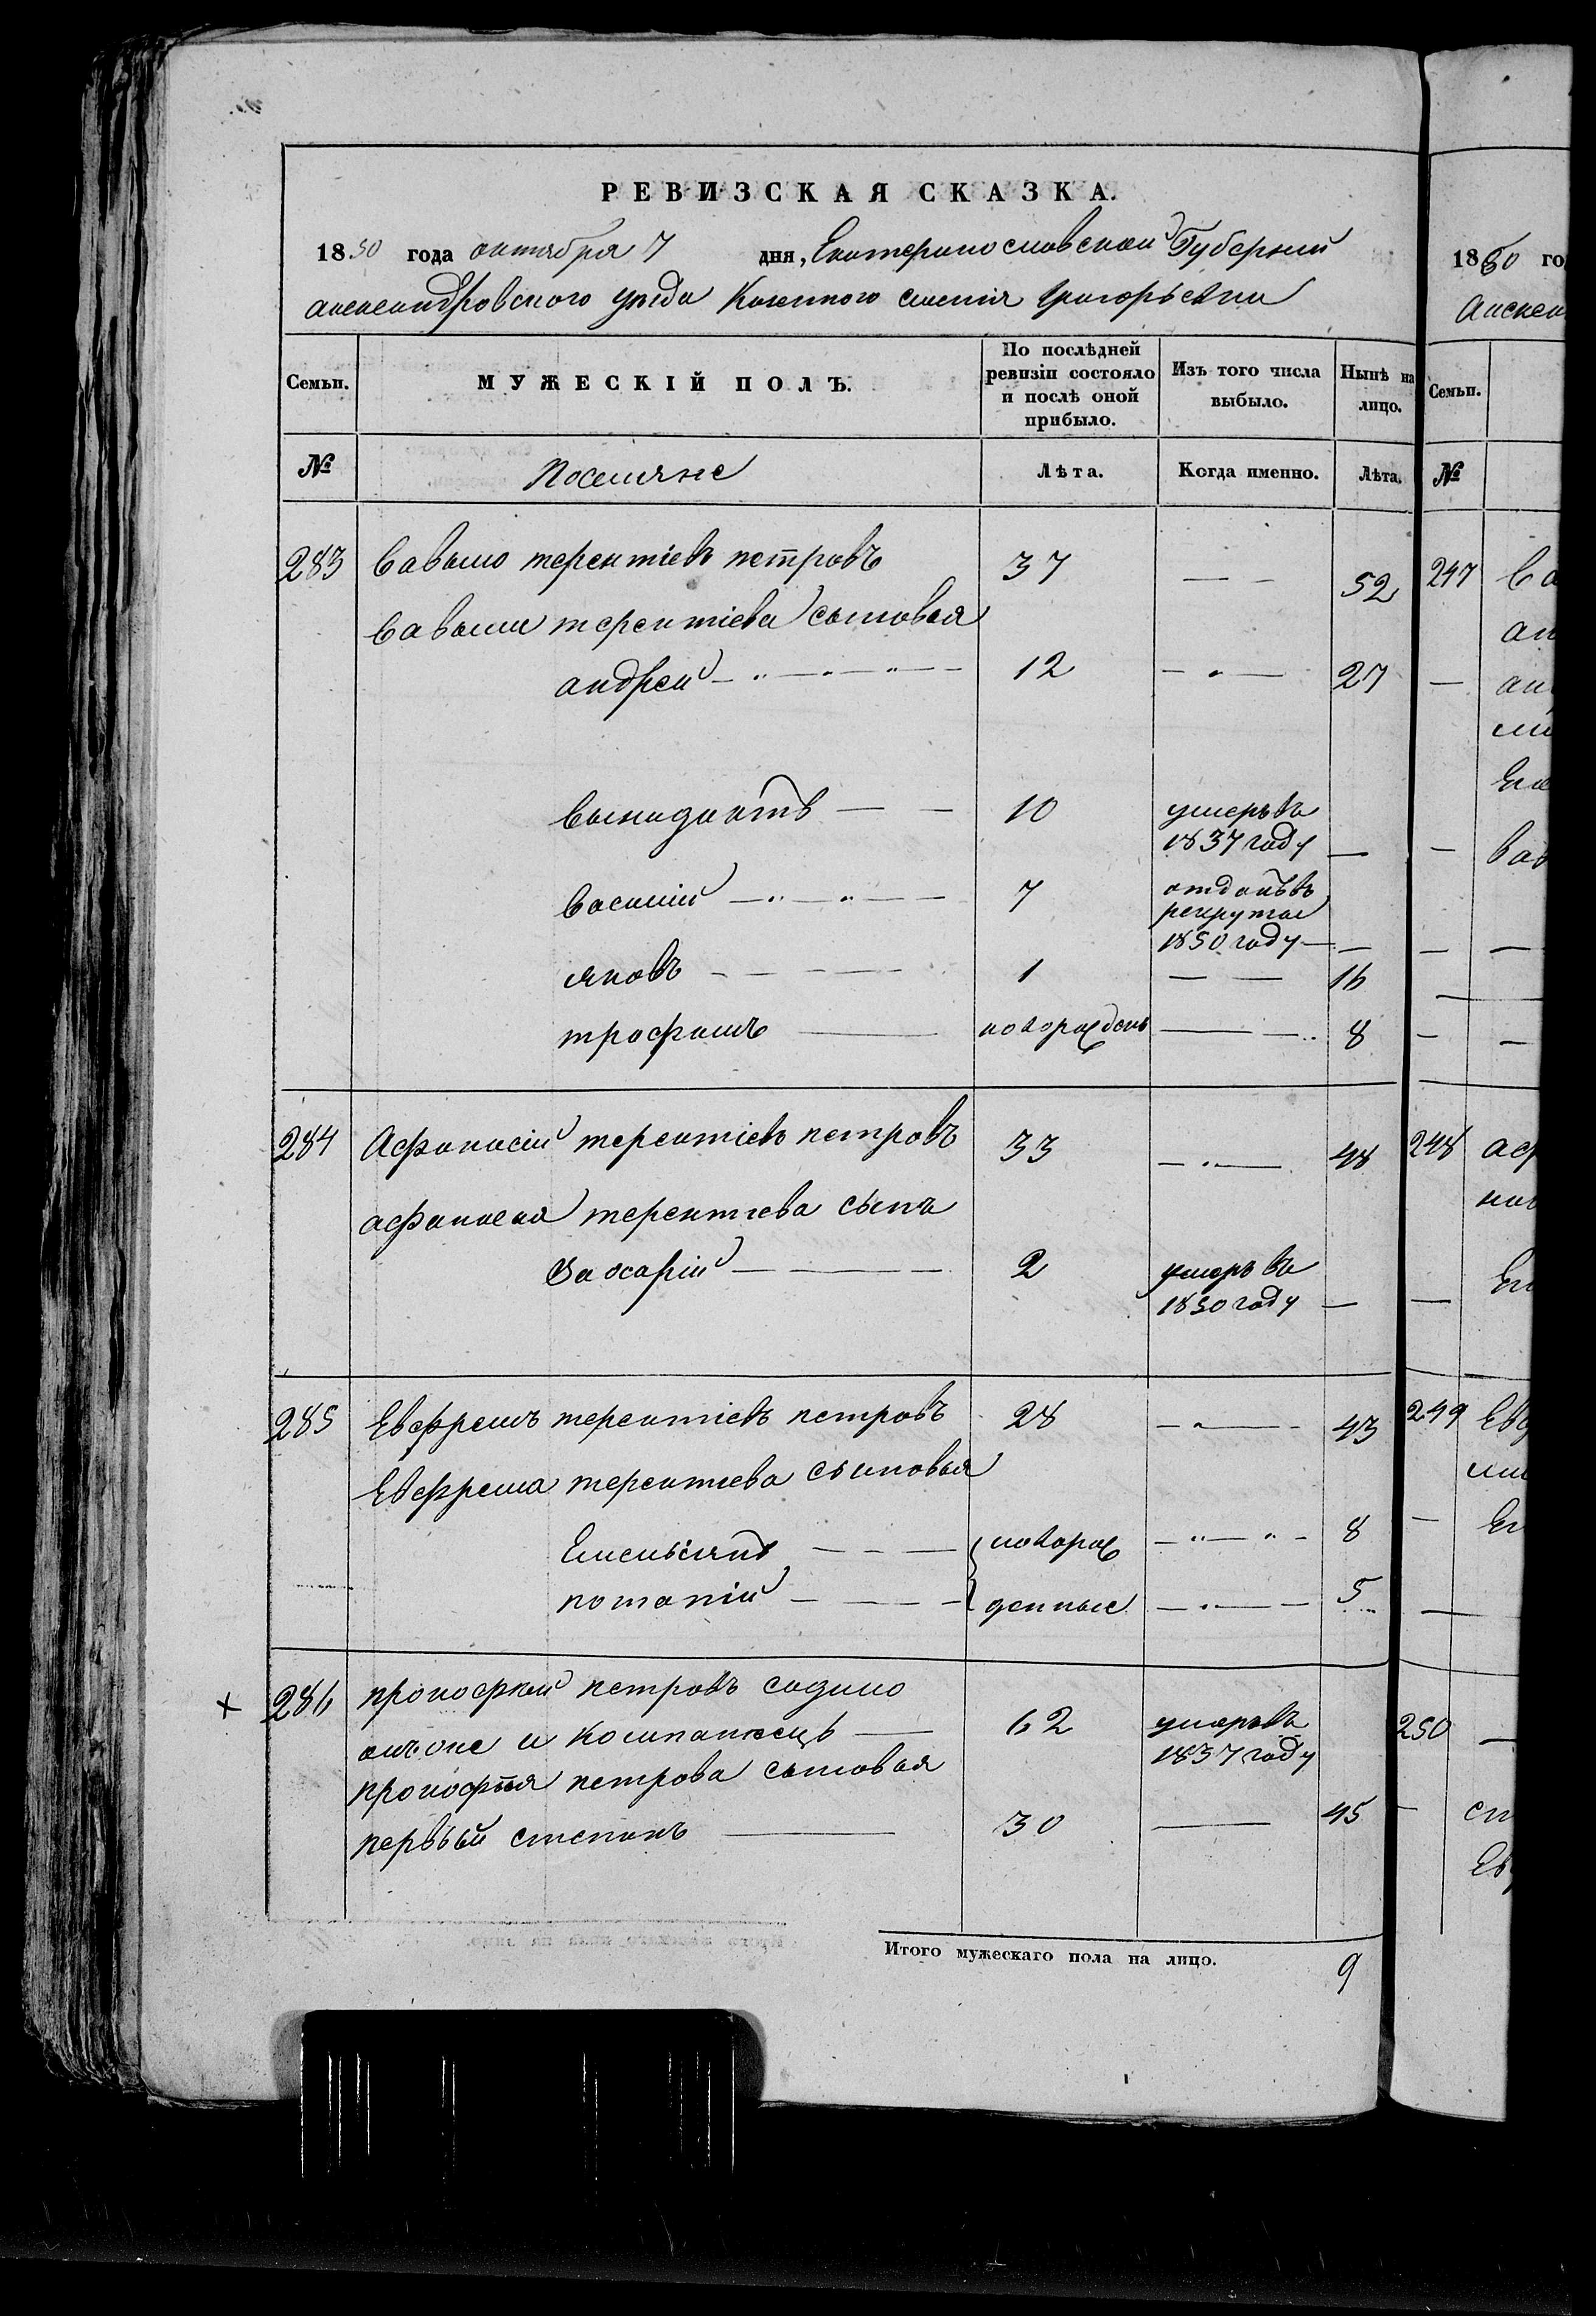 РЕВИЗСКАЯ СКАЗКА.
1850 года октября 7 дня, Екатеринославской Губерніи
александровского уезда Казенного селенія Григорьевки
Семьи. МУЖЕСКІЙ ПОЛЪ. По послѣдней ревизіи состояло и послѣ оной прибыло. Изъ того числа выбыло. Нынѣ на лицо.
№ Поселяне Лѣта. Когда именно. Лѣта.
283 терентіевъ петровъ 37 — — 52
терентіева сыновья
андрей — 12 — 27
10 умеръ въ 1837 году —
василій — 7 отданъ въ рекруты 1850 году —
яковъ — 1 — 16
трофимъ — новорожденъ — 8
284 Афанасій терентіевъ петровъ 33 — 48
афанасия терентиева сынъ
2 умеръ въ 1850 году —
285 Евфремъ терентіевъ петровъ 28 — 43
Евфрема терентиева сыновья
Емельянъ — новорож — 8
потапій — денные — 5
× 286 прокофий петровъ садило
онъ же и компанеецъ — 62 умеръ въ 1837 году
прокофия петрова сыновья
первый степанъ — 30 — 45
Итого мужескаго пола на лицо. 9
1850 го
Алексан
Семьи.
№
247 Са
ан
—
248 аф
249 Евф
250 —